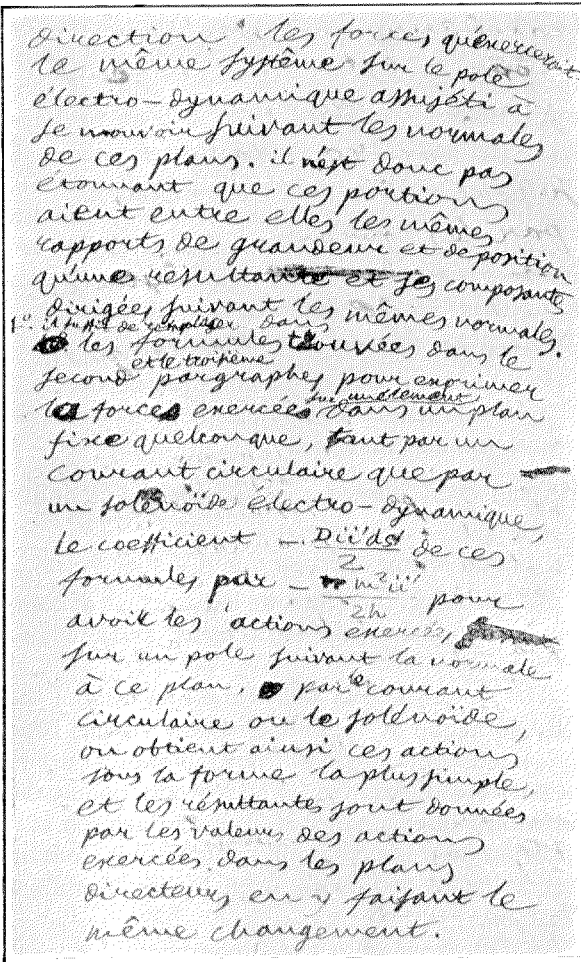 direction les forces qu'exercerait
le même système sur le pole
électro-dynamique assujéti à
se mouvoir suivant les normales
de ces plans. il n'est donc pas
étonnant que ces portions
aient entre elles les mêmes
rapports de grandeur et de position
qu'une resultante et ses composantes
dirigées suivant les mêmes normales.
1° il suffit de remplacer dans
les formules trouvées dans le
second et le troisième pargraphes pour exprimer
la forces exercées sur un élement dans un plan
fixe quelconque, tant par un
courant circulaire que par
un solénoïde électro-dynamique,
le coefficient – Dii'ds'/2 de ces
formules par – m²ii'/2h pour
avoir les actions exercées,
sur un pole suivant la normale
à ce plan, par le courant
circulaire ou le solénoïde,
on obtient ainsi ces actions
sous la forme la plus simple,
et les résultantes sont données
par les valeurs des actions
exercées dans les plans
directeurs en y faisant le
même changement.